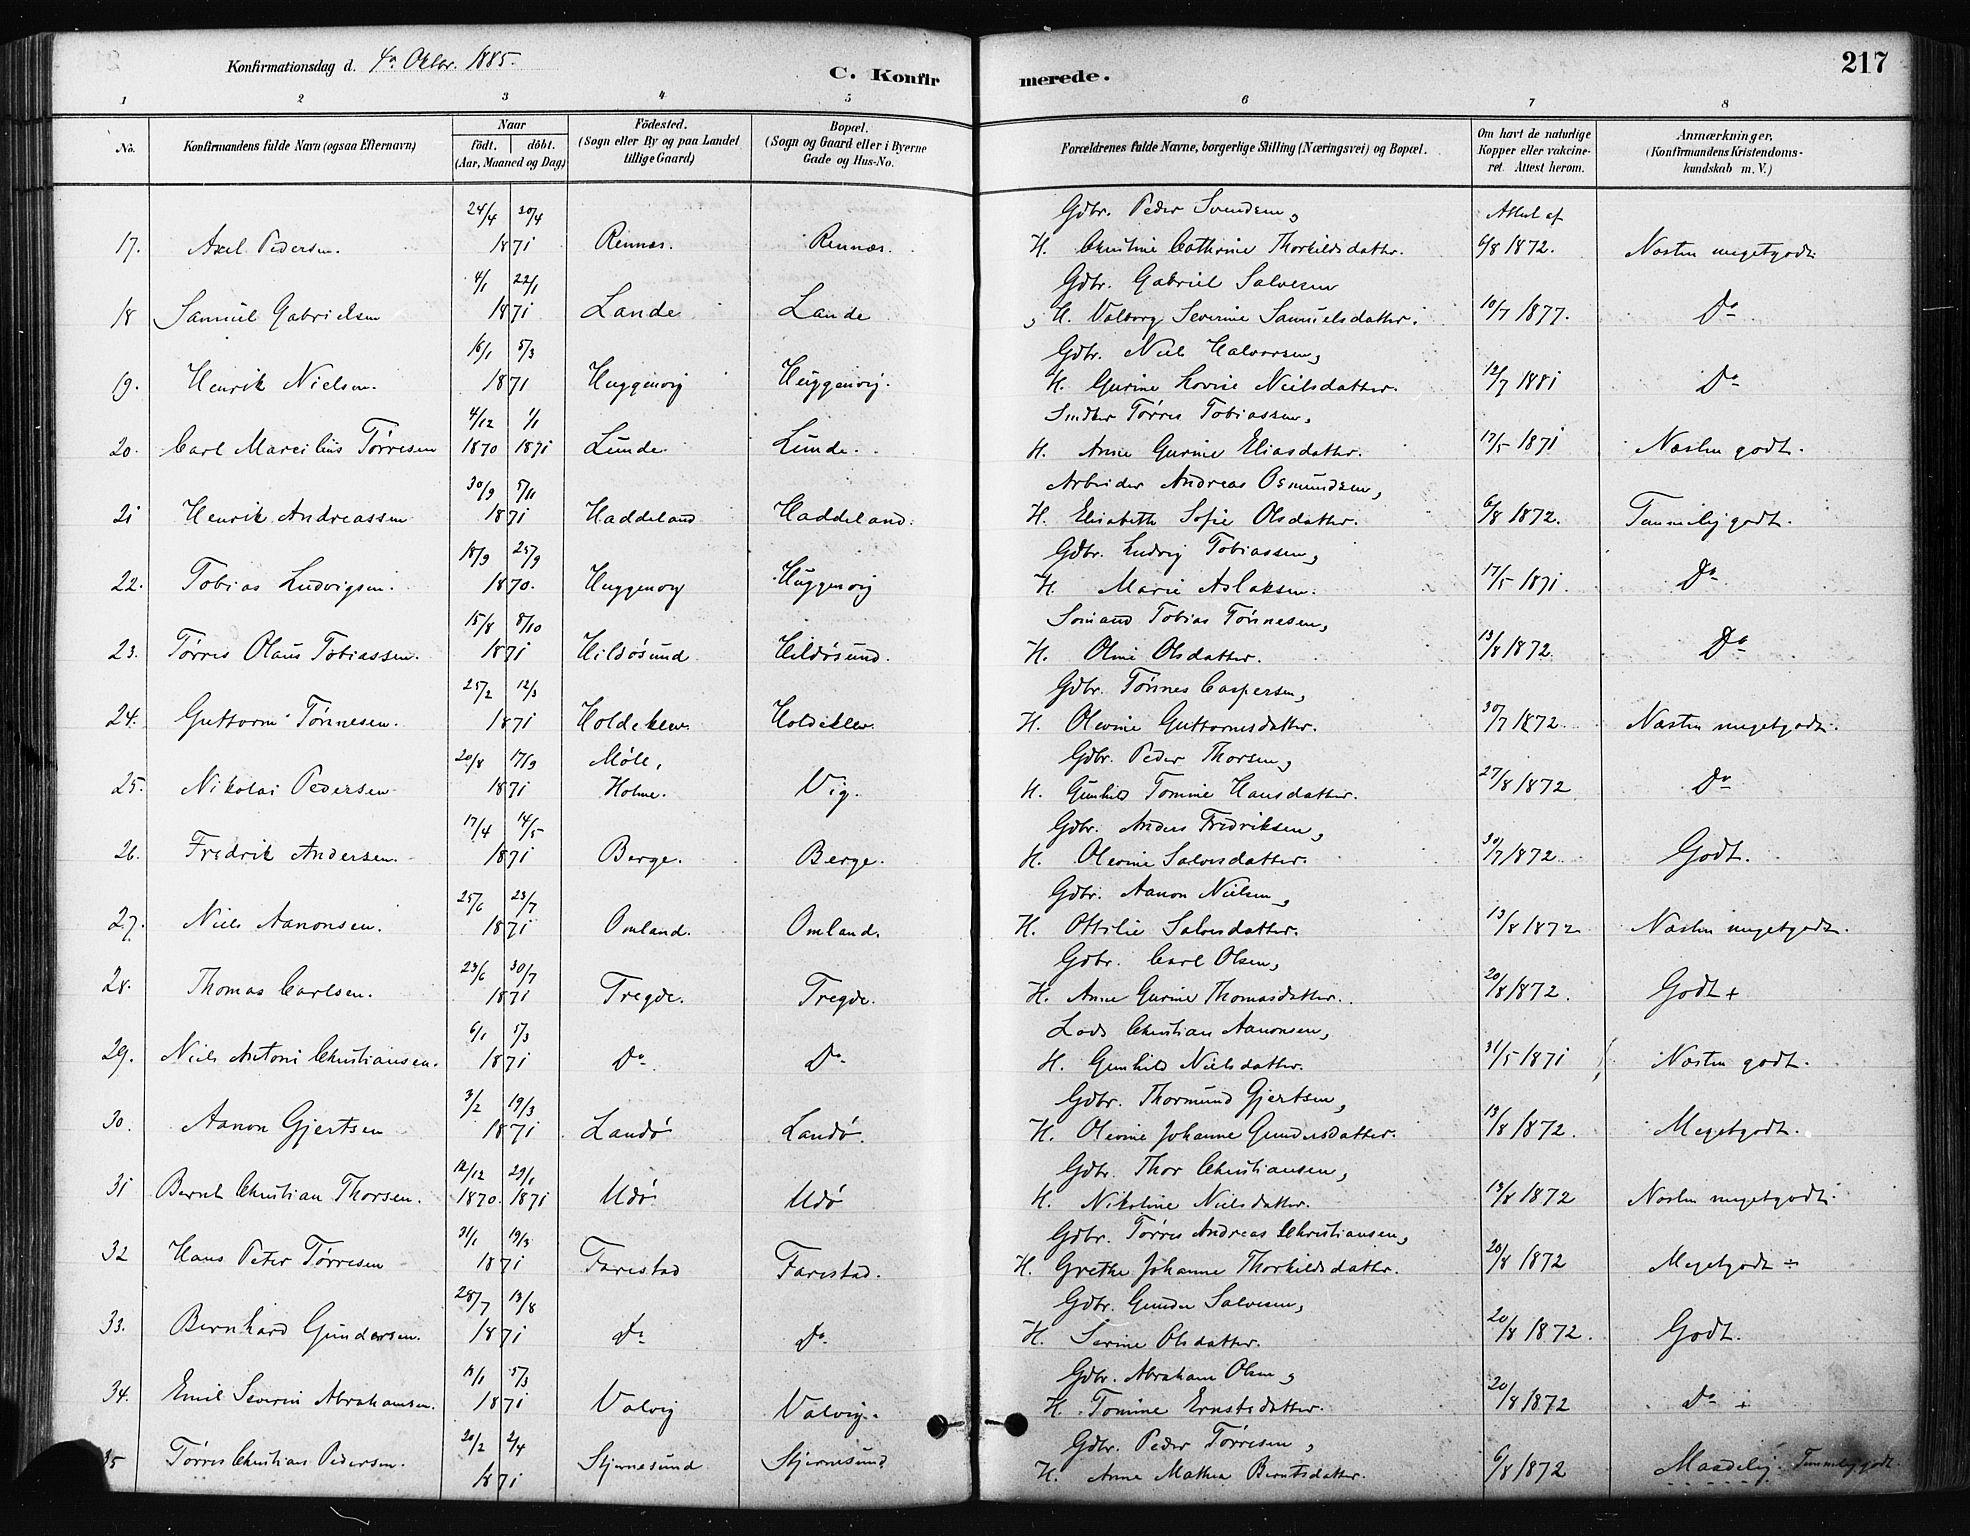 Konfirmationsdag d. 4de Oktbr. 1885.
C. Konfirmerede.
217
1 2 3 4 5 6 7 8
No. Konfirmandens fulde Navn (ogsaa Efternavn) Naar födt. döbt. (Aar, Maaned og Dag) Födested. (Sogn eller By og paa Landet tillige Gaard) Bopæl. (Sogn og Gaard eller i Byerne Gade og Hus-No. Forældrenes fulde Navne, borgerlige Stilling (Næringsvei) og Bopæl. Om havt de naturlige Kopper eller vakcineret. Attest herom. Anmærkninger, (Konfirmandens Kristendomskundskab m. V.)
24/4 30/4 Gdbr. Peder Svendsen, Attest af
17. Axel Pedersen. 1871 Rennæs. Rennæs. H. Christine Cathrine Thorkildsdatter. 6/8 1872. Næsten megetgodt.
4/1 22/1 Gdbr. Gabriel Salvesen
18 Samuel Gabrielsen 1871 Lande Lande H. Valborg Severine Samuelsdatter. 10/7 1877. Do
16/1 5/3 Gdbr. Niels Halvorsen,
19. Henrik Nielsen. 1871 Huggenvig Huggenvig. H. Gurine Lovise Neilsdatter. 12/7 1881 Do
4/12 1/1 Tørres Tobiassen,
20. Carl Marcilius Tørresen 1870 1871 Lunde Lunde. H. Anne Gurine Eliasdatter. 17/5 1871 Næsten godt.
30/9 5/11 Arbeider Andreas Osmundsen,
21 Henrik Andreassen 1871 Haddeland Haddeland. H. Elisabeth Sofie Olsdatter. 6/8 1872. Temmelig godt.
18/9 25/9 Gdbr. Ludvig Tobiassen,
22. Tobias Ludvigsen. 1870. Huggenvig Huggenvig H. Marie Aslaksen. 17/5 1871. Do
15/8 8/10 Sømand Tobias Tønnesen,
23. Tørres Olaus Tobiassen. 1871 Hildøsund Hildøsund. H. Oline Olsdatter. 13/8 1872. Do
25/2 12/3 Gdbr. Tønnes Caspersen,
24. Guttorm Tønnesen. 1871 Holdeklev. Holdeklev. H. Olevine Guttormsdatter. 30/7 1872. Næsten megetgodt.
20/8 17/9 Møle, Gdbr. Peder Thorsen,
25. Nikolai Pedersen 1871 Holme. Vig. H. Gunhild Tomine Hansdatter. 27/8 1872 Do
17/4 14/5 Gdbr. Anders Fredriksen,
26. Fredrik Andersen. 1871 Berge. Berge. H. Olevine Salvesdatter. 30/7 1872 Godt.
25/6 23/7 Gdbr. Aanon Nielsen,
27. Niels Aanonsen. 1871 Omland. Omland. H. Ottilie Salvesdatter. 13/8 1872 Næsten megetgodt.
23/6 30/7 Gdbr. Carl Olsen,
28. Thomas Carlsen. 1871 Tregde. Tregde. H. Anne Gurine Thomasdatter. 20/8 1872. Godt +
6/1 5/3 Lods Christian Aanonsen,
29. Niels Antoni Christiansen. 1871 Do Do H. Gunhild Nielsdatter. 31/5 1871 Næsten godt.
3/2 19/3 Gdbr. Thormund Gjertsen,
30. Aanon Gjertsen 1871 Landø Landø. H. Olevine Johanne Gundersdatter. 13/8 1872. Megetgodt.
12/12 29/1 Gdbr. Thor Christiansen,
31 Bernt Christian Thorsen. 1870. 1871 Udø Udø H. Nikoline Nielsdatter. 13/8 1872 Næsten megetgodt.
31/1 19/3 Gdbr. Tørres Andreas Christiansen,
32 Hans Peter Tørresen 1871 Farestad Farestad. H. Grethe Johanne Thorkildsdatter. 20/8 1872 Megetgodt ÷
28/7 13/8 Gdbr. Gunder Salvesen,
33. Bernhard Gundersen. 1871 Do Do H. Serine Olsdatter. 20/8 1872. Godt.
5/3 Gdbr. Abraham Olsen,
34. Emil Severin Abrahamsen. 1871 Valvig Valvig. H. Tomine Ernstsdatter. 20/8 1872 Do +
20/2 2/4 Gdbr. Peder Tørresen,
35 Tørres Christian Pedersen. 1871 Stjernesund Stjernesund H. Anne Mathea Berntsdatter. 6/8 1872 Maadelig. Temmelig godt.